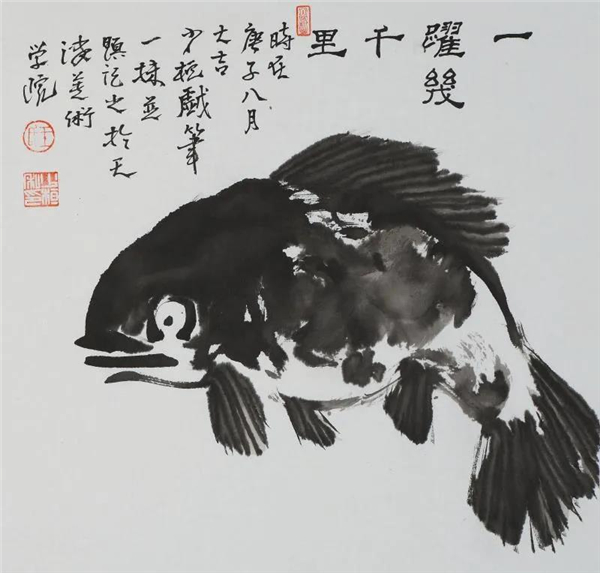 一
躍幾
千
里
時在
庚子八月
大吉
戲筆
一 並
題記之於天
津美術
学院